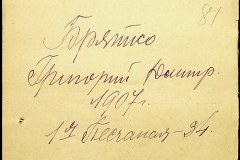 84
Брятко
Григорий Дмитр.
1907г.
1я Песчаная-34.